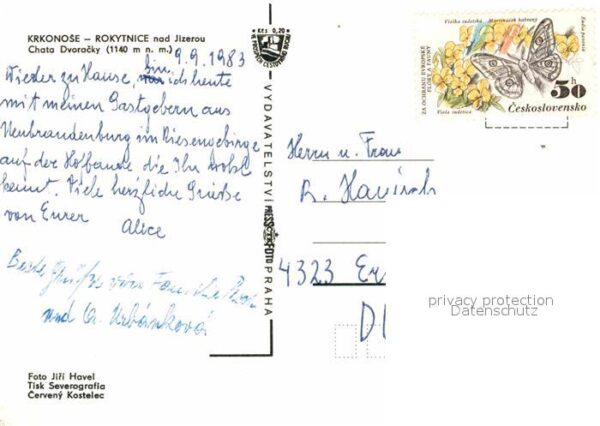 KRKONOŠE – ROKYTNICE nad Jizerou
Chata Dvoračky (1140 m n. m.)
9.9.1983
Wieder zu Hause, bin ich heute
mit meinen Gastgebern aus
Neubrandenburg im Riesengebirge
auf der Hofbaude die Ihr wohl
kennt. Viele herzliche Grüße
von Eurer
Alice
Beste Grüße von Familie
und A. Urbánková
Foto Jiří Havel
Tisk Severografia
Červený Kostelec
Kčs 0,20
VYDAVATELSTVÍ
PRESSFOTO
PRAHA
Violka sudetská
Martináček habrový
Eudia pavonia
ZA OCHRANU EVROPSKÉ
FLÓRY A FAUNY
Viola sudetica
50 h
Československo
Herrn u. Frau
R.
4323
privacy protection
Datenschutz